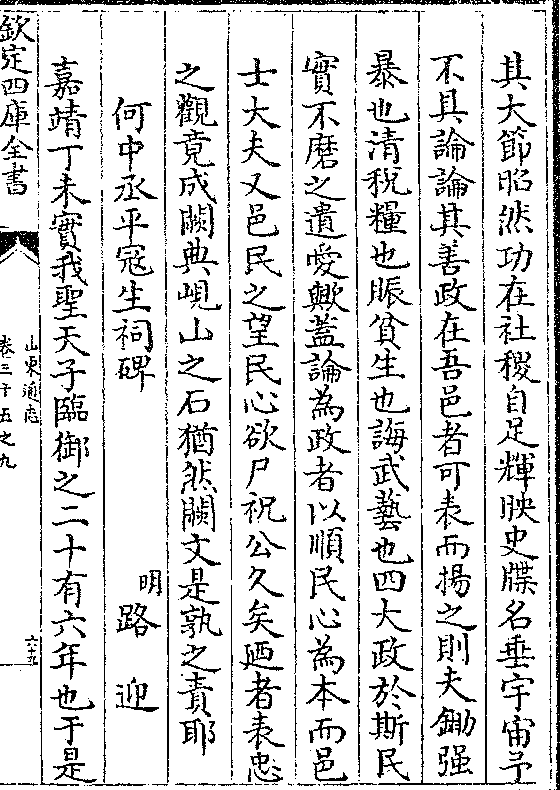 其大節昭然功在社稷自足輝映史牒名垂宇宙予
不具論論其善政在吾邑者可表而揚之則夫鋤强
暴也清稅糧也賑貧生也誨武藝也四大政於斯民
實不磨之遺愛歟蓋論為政者以順民心為本而邑
士大夫又邑民之望民心欲尸祝公久矣廼者表忠
之觀竟成闕典峴山之石猶然闕文是孰之責耶
何中丞平冦生祠碑
明
路迎
嘉靖丁未實我聖天子臨御之二十有六年也于是
欽定四庫全書
山東通志
卷三十五之九
六十五